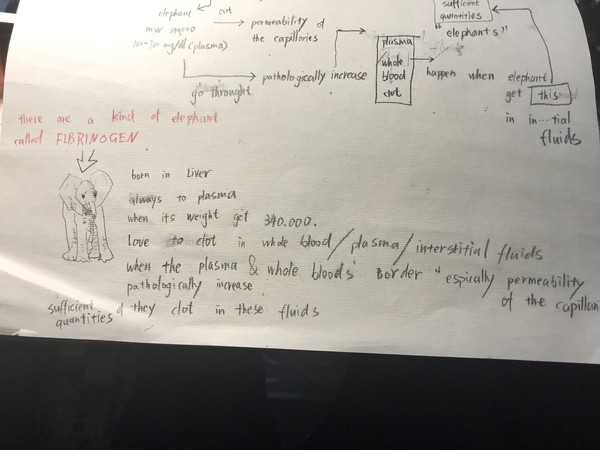 sufficient
quantities
elephant
out
permeability of
the capillaries
MW
100-700 mg/dl (plasma)
"elephants"
plasma
whole
blood
clot
go throught
pathologically increase
happen when
elephant
get this
in in...tial
fluids
there are a kind of elephant
called FIBRINOGEN
born in Liver
always to plasma
when its weight get 340.000.
Love to clot in whole blood/plasma/interstitial fluids
when the plasma & whole blood's Border "espically permeability
pathologically increase
of the capillari
sufficient
quantities of they clot in these fluids